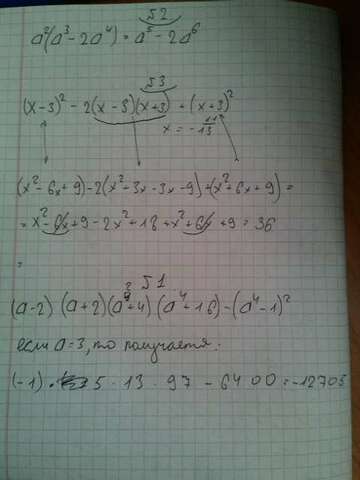 №2
a²(a³-2a⁴) = a⁵-2a⁶
№3
(x-3)² - 2(x-3)(x+3) + (x+3)²
x = -11/13
(x²-6x+9)-2(x²+3x-3x-9)+(x²+6x+9) =
= x²-6x+9-2x²+18+x²+6x+9 = 36
=
№1
(a-2)(a+2)(a²+4)(a⁴+16)-(a⁴-1)²
если a=3, то получается:
(-1) · 5 · 13 · 97 - 6400 = -12705